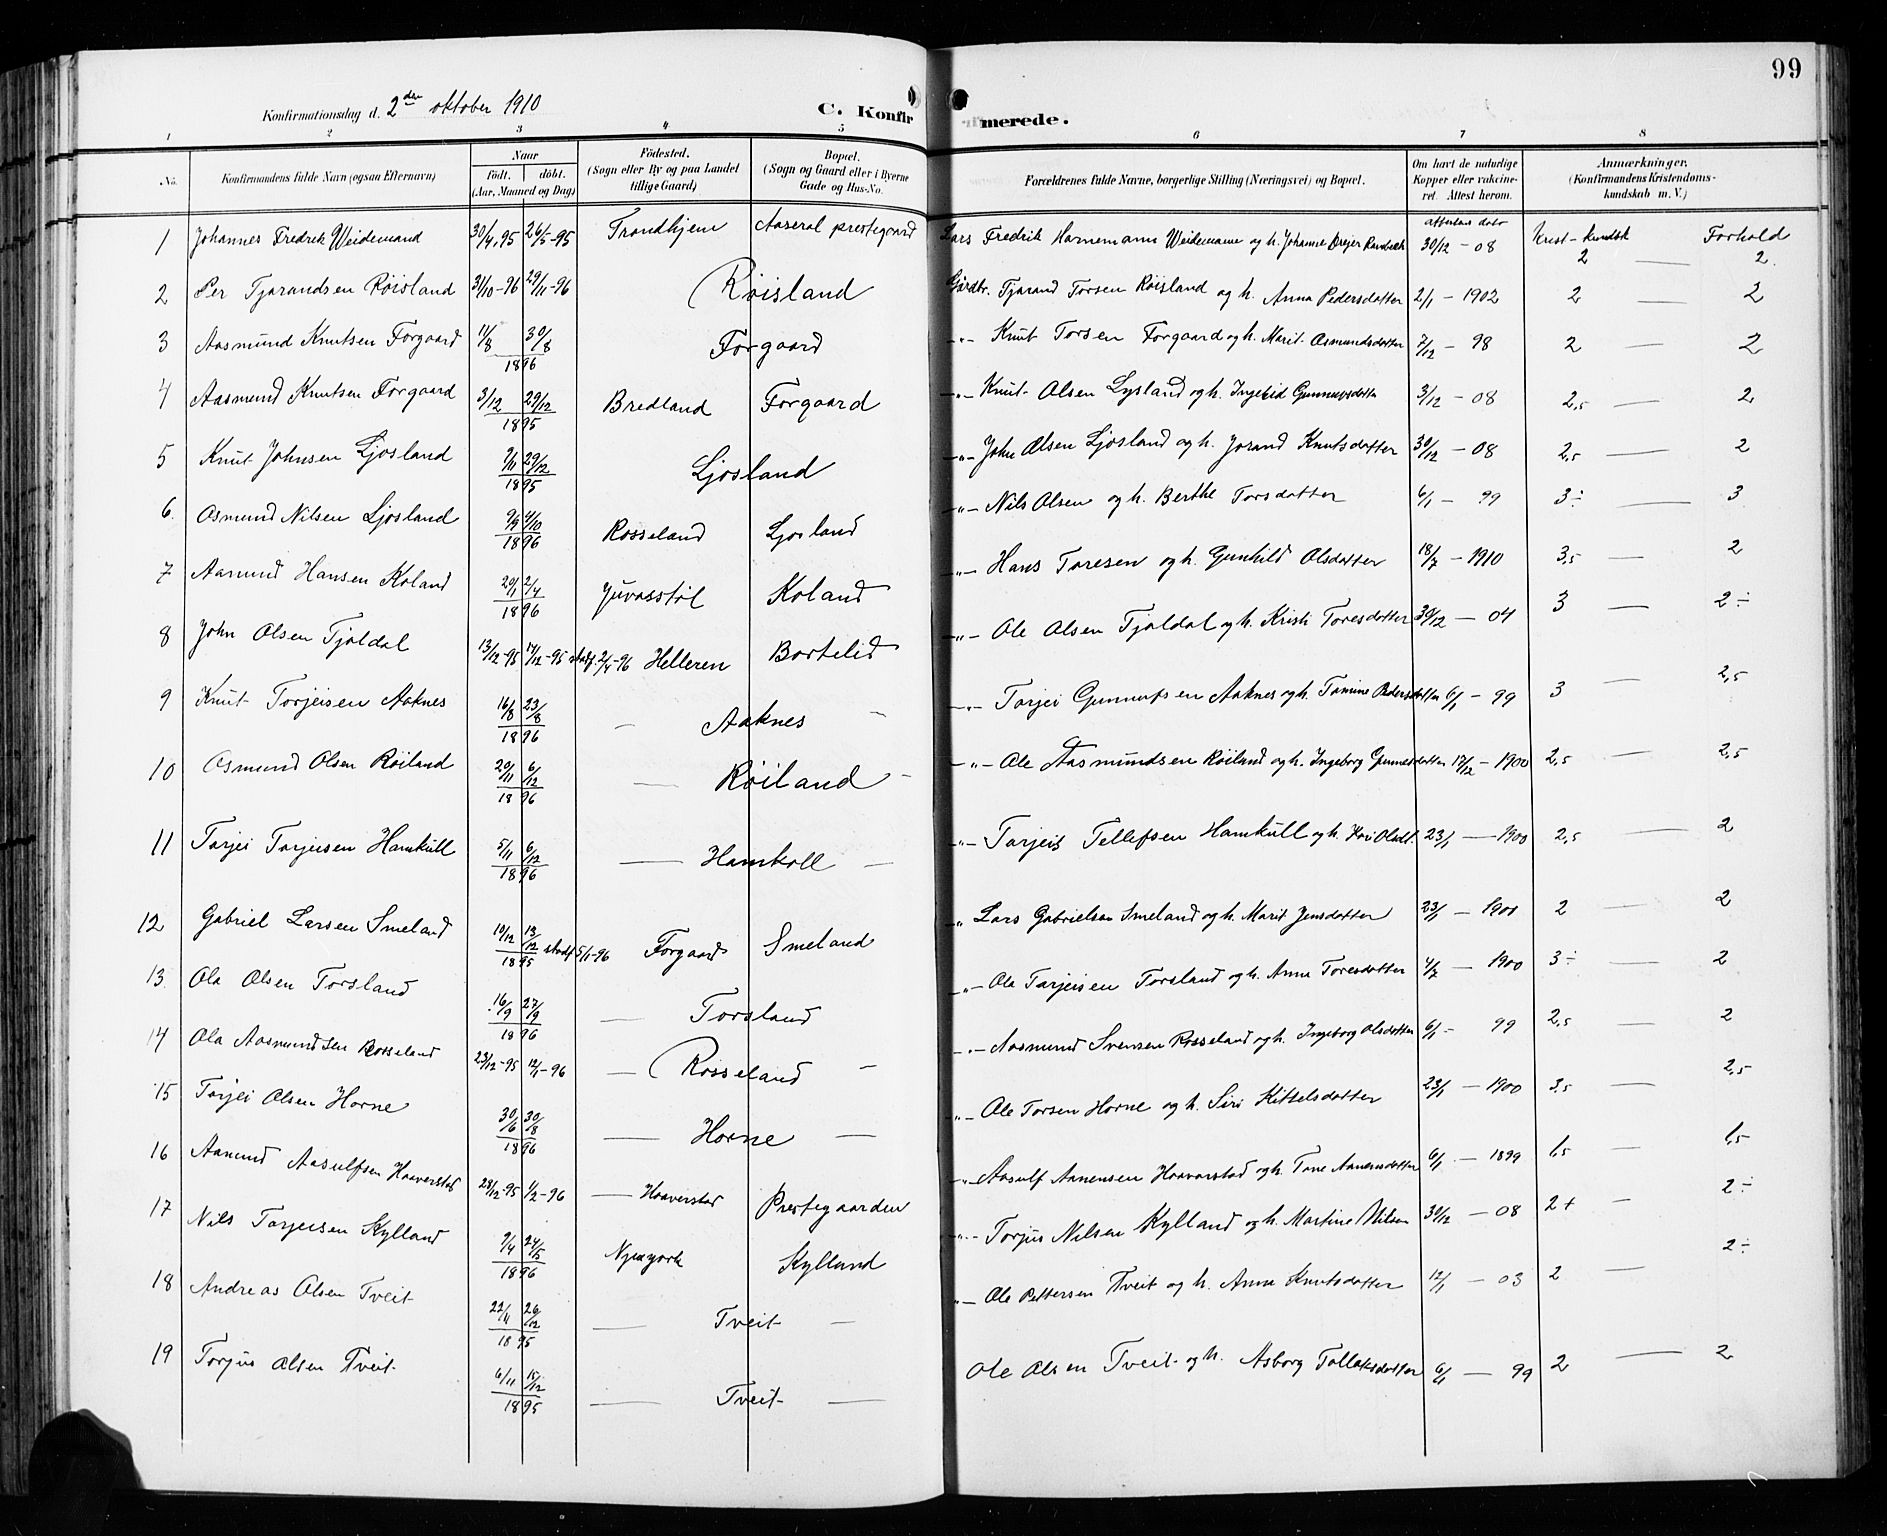 99
Konfirmationsdag d. 2den oktober 1910
C. Konfirmerede.
1 2 3 4 5 6 7 8
No.
Konfirmandens fulde Navn (ogsaa Efternavn)
Naar
födt. döbt.
(Aar, Maaned og Dag)
Födested.
(Sogn eller By og paa Landet
tillige Gaard)
Bopæl.
(Sogn og Gaard eller i Byerne
Gade og Hus-No.
Forældrenes fulde Navne, borgerlige Stilling (Næringsvei) og Bopæl.
Om havt de naturlige
Kopper eller vakcine-
ret. Attest herom.
Anmærkninger.
(Konfirmandens Kristendoms-
kundskab m. V.)
attestens dato
Krist-kundsk Forhold
1 Johannes Fredrik Weidemand 30/4, 95 26/5-95 Trondhjem Aaseral prestegaard Lars Fredrik Hornemann Weidemann og h. Johanne Drejer 30/12 - 08 2 — 2.
2 Per Tjarandsen Röisland 31/10-96 29/11-96 Röisland Gårdbr. Tjarand Torsen Röisland og h. Anna Pedersdatter 2/1 - 1902 2 — 2
3 Aasmund Knutsen Forgaard 11/8 30/8 1896 Forgaard -"- Knut Torsen Forgaard og h. Marit Osmundsdatter 7/12 - 98 2 — 2
4 Aasmund Knutsen Forgaard 3/12 29/12 1895 Bredland Forgaard -"- Knut Olsen Lysland og h. Ingebid 3/12 - 08 2,5 — 2
5 Knut Johnsen Ljosland 9/11 29/12 1895 Ljosland -"- John Olsen Ljosland og h. Jorand Knutsdatter 30/12 - 08 2,5 — 2
6. Osmund Nilsen Ljosland 9/9 4/10 1896 Rosseland Ljosland -"- Nils Olsen og h. Berthe Torsdatter 6/1 - 99 3÷ — 3
7 Aamund Hansen Koland 20/1 2/4 1896 Juvasstöl Koland -"- Hans Toresen og h. Gunhild Olsdatter 18/7 - 1910 3,5 — 2
8 John Olsen Tjaldal 13/12-95 17/12-95 stadf. 2/4-96 Helleren Bortelid -"- Ole Olsen Tjaldal og h. Kristi Toresdatter 30/12 - 04 3 — 2÷
9 Knut Torjeisen Aaknes 16/8 23/8 1896 — Aaknes — -"- Tarjei Gunnufsen Aaknes og h. Tomine Pedersdatter 6/1 - 99 3 — 2,5
10 Osmund Olsen Röiland 20/11 6/12 1896 — Röiland — -"- Ole Aasmundsen Röiland og h. Ingeborg 17/12 - 1900 2,5 — 2,5
11 Tarjei Tarjeisen Hamkull 5/11 6/12 1896 — Hamkoll — -"- Tarjeis Tellefsen Hamkull og h. Kari Olsdt. 23/1 — 1900 2,5 — 2
12 Gabriel Larsen Smeland 10/12 13/12 1895 stadf 5/1-96 Forgaard Smeland " Lars Gabrielsen Smeland og h. Marit Jensdatter 23/1 - 1900 2 — 2
13. Ola Olsen Torsland 16/9 27/9 1896 — Torsland -"- Ole Tarjeisen Torsland og h. Anna Toresdatter 4/7 - 1900 3÷ — 2
14 Ola Aasmundsen Rosseland 23/12-95 12/1-96 — Rosseland — -"- Aasmund Svensen Rosseland og h. Ingeborg Olsdatter 6/1 - 99 2,5 — 2
15 Tarjei Olsen Horne 30/6 30/8 1896 — Horne — -"- Ole Torsen Horne og h. Siri Kittelsdatter 23/1 - 1900 3,5 — 2,5
16 Aanund Aasulfsen Haaverstad 28/12-95 1/2-96 — Haaverstad Prestegaarden -"- Aasulf Aanensen Haavarstad og h. Tone Aanensdatter 6/1 - 1899 1,5 — 1,5
17 Nils Tarjeisen Kylland 9/4 24/5 1896 Newyork Kylland -"- Torjus Nilsen Kylland og h. Martine Nilsen 30/12 - 08 2+ — 2÷
18 Andreas Olsen Tveit 22/11 26/12 1895 — Tveit — -"- Ole Pettersen Tveit og h. Anna Knutsdatter 12/1 - 03 2 — 2÷
19 Torjus Olsen Tveit 6/11 15/12 1895 — Tveit — Ole Olsen Tveit og h. Asborg Tollaksdatter 6/1 — 99 2 — 2